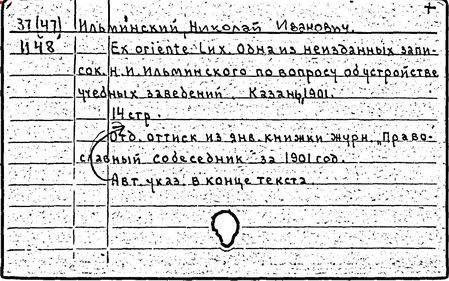 +
37(47) Ильминский, Николай Иванович.
И 48 Ex oriente Lux. Одна из неизданных запи-
сок Н.И. Ильминского по вопросу об устройстве
учебных заведений. Казань, 1901.
14 стр.
Отд. оттиск из янв. книжки журн. „Право-
славный собеседник" за 1901 год.
Авт. указ. в конце текста.